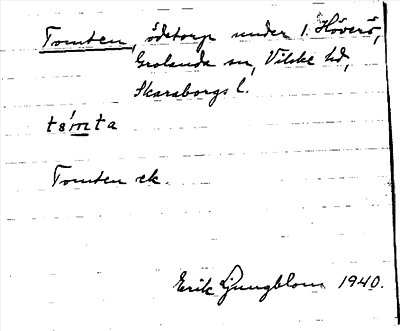 Tomten, ödetorp under 1 Höverö,
Grolanda sn, Vilske hd,
Skaraborgs l.
tɷ'mta
Tomten ek.
Erik Ljungblom 1940.